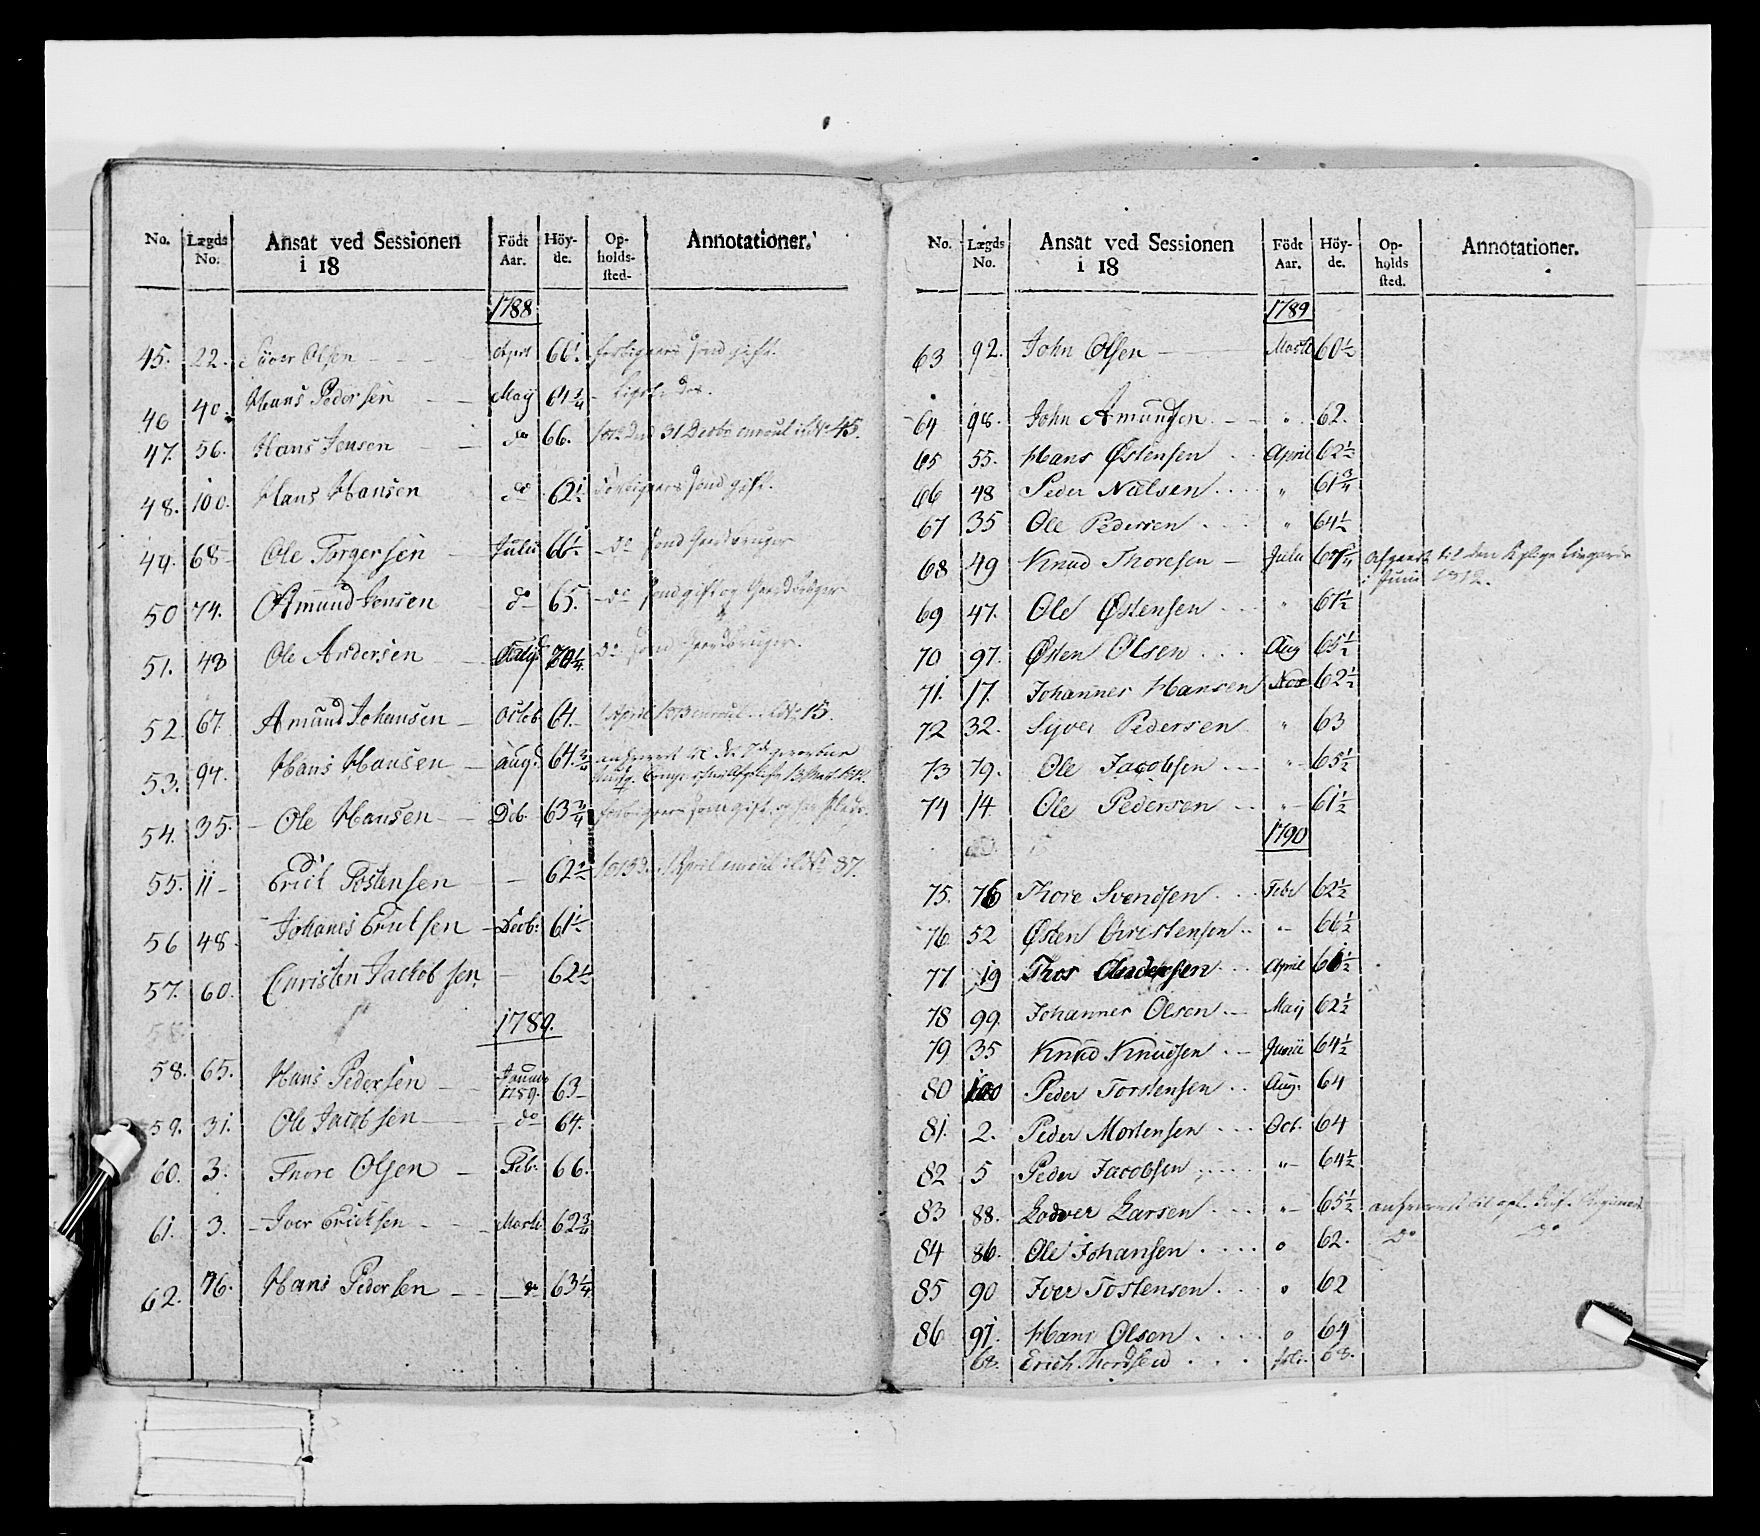 No. Lægds No. Ansat ved Sessionen i 18 Födt Aar. Höyde. Opholdssted. Annotationer.
1788
45. 22. Siver Olsen April 60½ forbigaaes som gift.
46 40. Hans Pedersen May 64¾
47. 56. Hans Jensen do 66. 31 Decbr enroul 45.
48. 100. Hans Hansen do 62½ forbigaaes som gift.
49. 68 Ole Torgersen Julii 66½ do som Gaardbruger
50 74. Amund Jensen do 65. do som gift og Gaardbruger
51. 48 Ole Andersen 70¼ do som Gaardbruger.
52. 67. Amund Johansen Octob 64. April 1813 enroul 15.
53. 94. Hans Hansen Aug. 64¾
54. 35. Ole Hansen Dcb. 63¾ forbigaaes som gift og
55. 11 Erich Tostensen 62½ April enroul 87.
56 48 Johanes Erichsen Decb: 61½
57. 60. Christen Jachobsen 62½
1789.
58. 65. Hans Pedersen Januar 1789. 63
59. 31. Ole Jacobsen do 64.
60. 3. Thore Olsen Feb: 66.
61. 3. Iver Erichsen Marti 62¾
62. 76. Hans Pedersen do 63¼
No. Lægds No. Ansat ved Sessionen i 18 Födt Aar. Höyde. Opholds sted. Annotationer.
1789
63 92. John Olsen Marti 60½
64 98. John Amundsen. " 62.
65 55. Hans Østensen April 62½
66 48 Peder Nielsen " 61¾
67 35 Ole Pedersen " 64½
68 49 Knud Thoresen Julu afgaaet til den
i Junii 1812.
69 47. Ole Østensen " 67½
70 97. Østen Olsen Aug 65½
71. 17. Johannes Hansen Nov 62½
72 32. Syver Pedersen " 63
73 79. Ole Jacobsen " 65½
74 14. Ole Pedersen " 61½
1790
75. 76 Thore Svendsen Febr 62½
76. 52 Østen Christensen " 66½
77 19 Thor Andersen April 61½
78 99. Johannes Olsen May 62½
79 35 Knud Knudsen Junii 64½
80 100 Peder Torstensen Aug. 64
81. 2. Peder Mortensen Oct. 64
82 5 Peder Jacobsen " 64½
83 88. Lodver Larsen " 65½
84 86. Ole Johansen o 62. Do Do
85 90 Iver Tostensen o 62
86 91. Hans Olsen o 64
68. Erich Thordsen 68.